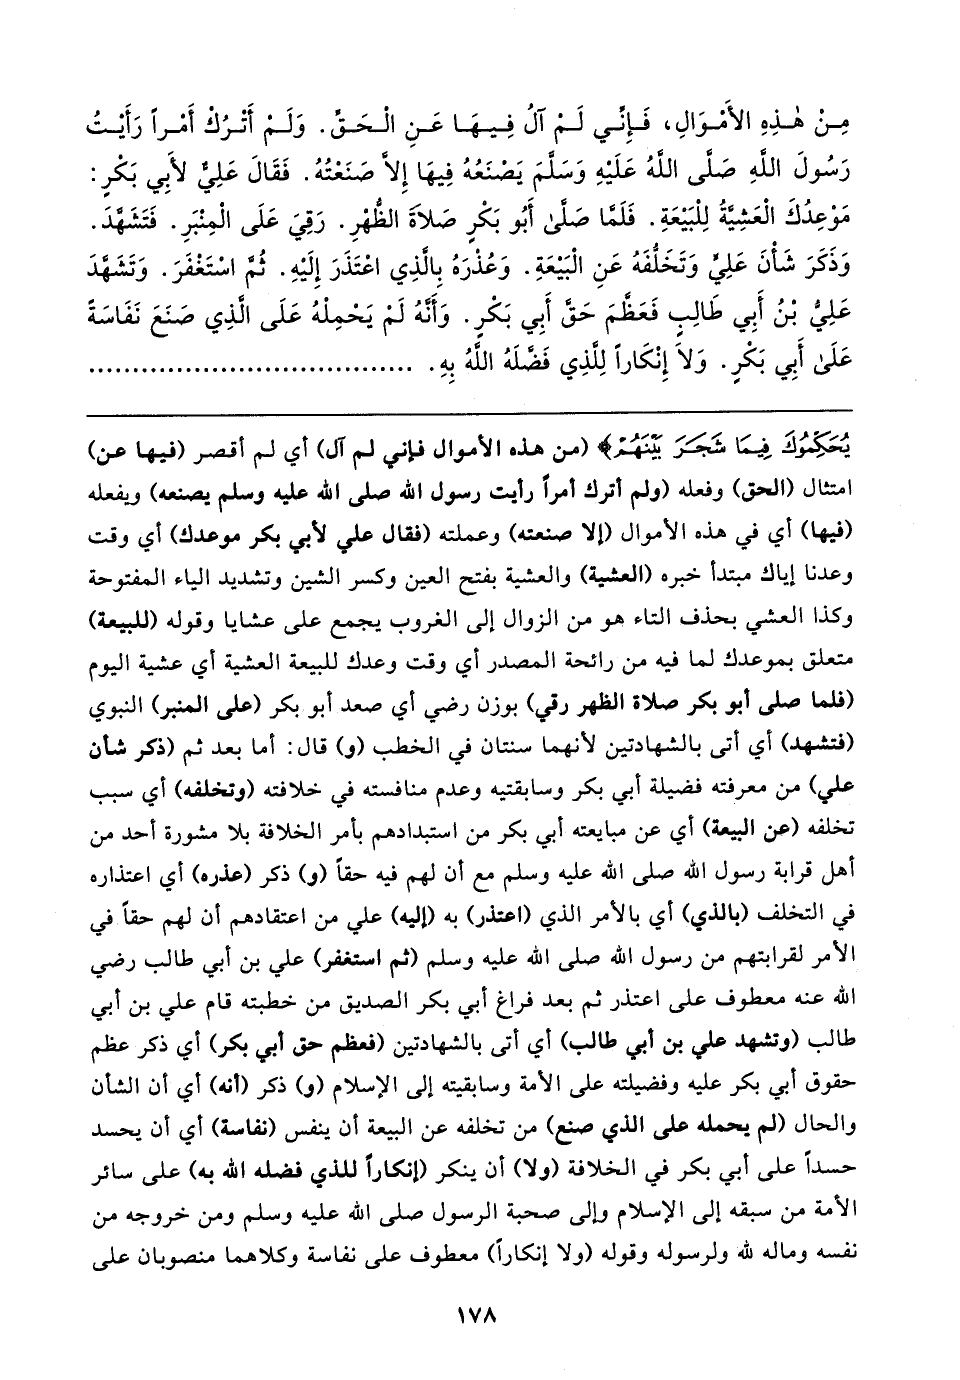 مِنْ هٰذِهِ الأَمْوَالِ، فَإِنِّي لَمْ آلُ فِيهَا عَنِ الْحَقِّ. وَلَمْ أَتْرُكْ أَمْراً رَأَيْتُ
رَسُولَ اللَّهِ صَلَّى اللَّهُ عَلَيْهِ وَسَلَّمَ يَصْنَعُهُ فِيهَا إِلاَّ صَنَعْتُهُ. فَقَالَ عَلِيٌّ لأَبِي بَكْرٍ:
مَوْعِدُكَ الْعَشِيَّةُ لِلْبَيْعَةِ. فَلَمَّا صَلَّىٰ أَبُو بَكْرٍ صَلاَةَ الظُّهْرِ. رَقِيَ عَلَى الْمِنْبَرِ. فَتَشَهَّدَ.
وَذَكَرَ شَأْنَ عَلِيٍّ وَتَخَلُّفَهُ عَنِ الْبَيْعَةِ. وَعُذْرَهُ بِالَّذِي اعْتَذَرَ إِلَيْهِ. ثُمَّ اسْتَغْفَرَ. وَتَشَهَّدَ
عَلِيُّ بْنُ أَبِي طَالِبٍ فَعَظَّمَ حَقَّ أَبِي بَكْرٍ. وَأَنَّهُ لَمْ يَحْمِلْهُ عَلَى الَّذِي صَنَعَ نَفَاسَةً
عَلَىٰ أَبِي بَكْرٍ. وَلاَ إِنْكَاراً لِلَّذِي فَضَّلَهُ اللَّهُ بِهِ. .....................................
يُحَكِّمُوكَ فِيمَا شَجَرَ بَيْنَهُمْ﴾ (من هذه الأموال فإني لم آل) أي لم أقصر (فيها عن)
امتثال (الحق) وفعله (ولم أترك أمراً رأيت رسول الله صلى الله عليه وسلم يصنعه) ويفعله
(فيها) أي في هذه الأموال (إلا صنعته) وعملته (فقال علي لأبي بكر موعدك) أي وقت
وعدنا إياك مبتدأ خبره (العشية) والعشية بفتح العين وكسر الشين وتشديد الياء المفتوحة
وكذا العشي بحذف التاء هو من الزوال إلى الغروب يجمع على عشايا وقوله (للبيعة)
متعلق بموعدك لما فيه من رائحة المصدر أي وقت وعدك للبيعة العشية أي عشية اليوم
(فلما صلى أبو بكر صلاة الظهر رقي) بوزن رضي أي صعد أبو بكر (على المنبر) النبوي
(فتشهد) أي أتى بالشهادتين لأنهما سنتان في الخطب (و) قال: أما بعد ثم (ذكر شأن
علي) من معرفته فضيلة أبي بكر وسابقتيه وعدم منافسته في خلافته (وتخلفه) أي سبب
تخلفه (عن البيعة) أي عن مبايعته أبي بكر من استبدادهم بأمر الخلافة بلا مشورة أحد من
أهل قرابة رسول الله صلى الله عليه وسلم مع أن لهم فيه حقاً (و) ذكر (عذره) أي اعتذاره
في التخلف (بالذي) أي بالأمر الذي (اعتذر) به (إليه) علي من اعتقادهم أن لهم حقاً في
الأمر لقرابتهم من رسول الله صلى الله عليه وسلم (ثم استغفر) علي بن أبي طالب رضي
الله عنه معطوف على اعتذر ثم بعد فراغ أبي بكر الصديق من خطبته قام علي بن أبي
طالب (وتشهد علي بن أبي طالب) أي أتى بالشهادتين (فعظم حق أبي بكر) أي ذكر عظم
حقوق أبي بكر عليه وفضيلته على الأمة وسابقيته إلى الإسلام (و) ذكر (أنه) أي أن الشأن
والحال (لم يحمله على الذي صنع) من تخلفه عن البيعة أن ينفس (نفاسة) أي أن يحسد
حسداً على أبي بكر في الخلافة (ولا) أن ينكر (إنكاراً للذي فضله الله به) على سائر
الأمة من سبقه إلى الإسلام وإلى صحبة الرسول صلى الله عليه وسلم ومن خروجه من
نفسه وماله لله ولرسوله وقوله (ولا إنكاراً) معطوف على نفاسة وكلاهما منصوبان على
١٧٨